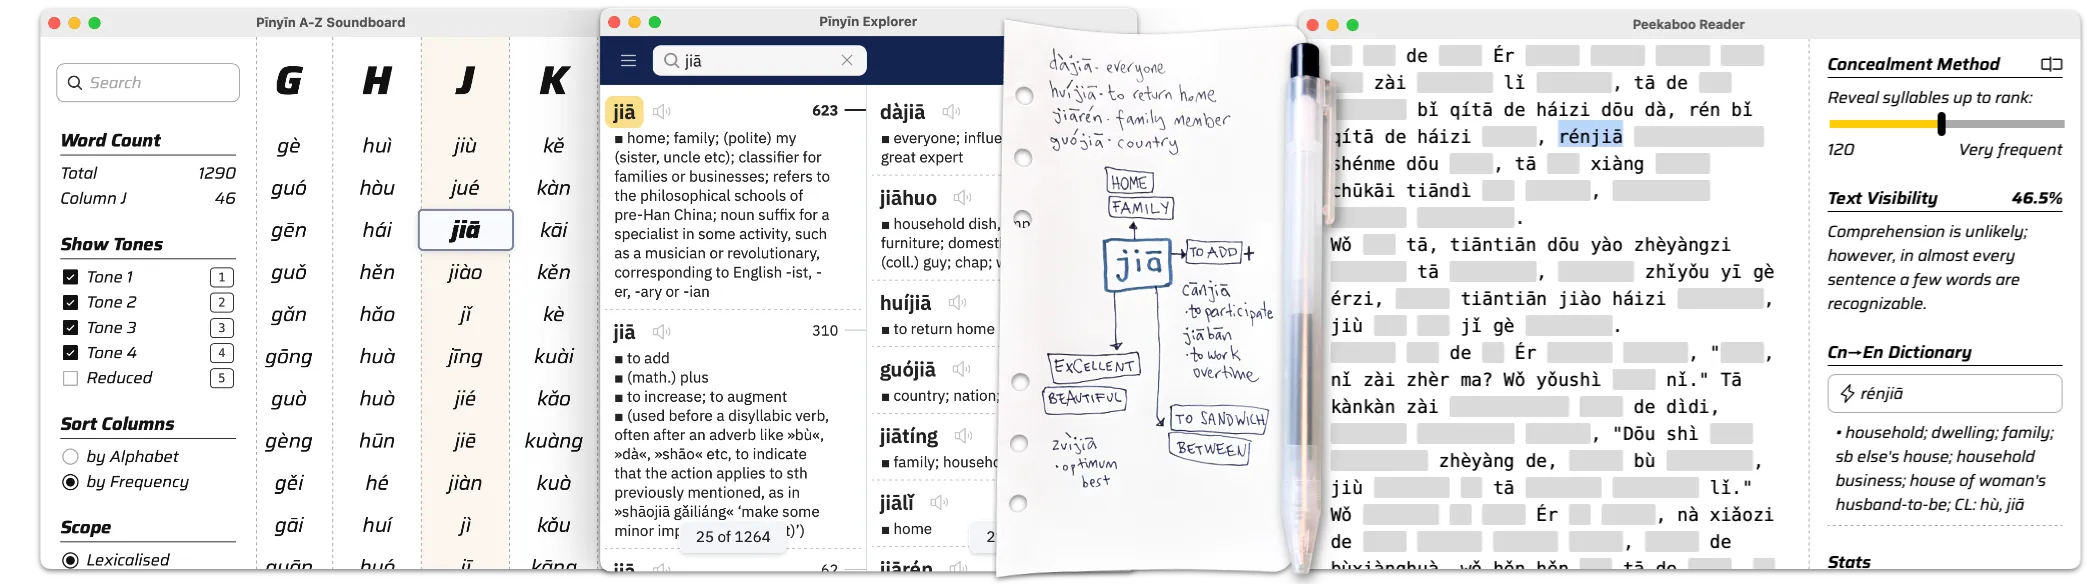 Pīnyīn A-Z Soundboard
Search
Word Count
Total 1290
Column J 46
Show Tones
Tone 1 1
Tone 2 2
Tone 3 3
Tone 4 4
Reduced 5
Sort Columns
by Alphabet
by Frequency
Scope
Lexicalised
G H J K
gè huì jiù kě
guó hòu jué kàn
gēn hái jiā kāi
guǒ hěn jiào kěn
gǎn hǎo jǐ kè
gōng huà jīng kuài
guò huò jié kǎo
gèng hūn jiē kuàng
gěi hé jiàn kuò
gāi huí jì kǒu
Pīnyīn Explorer
jiā
jiā 623
■ home; family; (polite) my
(sister, uncle etc); classifier for
families or businesses; refers to
the philosophical schools of
pre-Han China; noun suffix for a
specialist in some activity, such
as a musician or revolutionary,
corresponding to English -ist, -
er, -ary or -ian
jiā 310
■ to add
■ (math.) plus
■ to increase; to augment
■ (used before a disyllabic verb,
often after an adverb like »bù«,
»dà«, »shāo« etc, to indicate
that the action applies to sth
previously mentioned, as in
»shāojiā gǎiliáng« ‘make some
minor imp t)’)
25 of 1264
jiā 62
dàjiā
■ everyone; influe
great expert
jiāhuo
■ household dish,
furniture; domest
(coll.) guy; chap; w
huíjiā
■ to return home
guójiā
■ country; nation;
jiātíng
■ family; househo
jiālǐ
■ home
jiārén
dàjiā - everyone
huíjiā - to return home
jiārén - family member
guójiā - country
HOME
FAMILY
jiā
TO ADD +
cānjiā
· to participate
jiābān
· to work
overtime
EXCELLENT
BEAUTIFUL
TO SANDWICH
BETWEEN
zuìjiā
· optimum
best
Peekaboo Reader
de Ér
zài lǐ , tā de
bǐ qítā de háizi dōu dà, rén bǐ
qítā de háizi , rénjiā
shénme dōu , tā xiàng
chūkāi tiāndì ,
.
Wǒ tā, tiāntiān dōu yào zhèyàngzi
tā , zhǐyǒu yī gè
érzi, tiāntiān jiào háizi ,
jiù jǐ gè .
de Ér , " ,
nǐ zài zhèr ma? Wǒ yǒushì nǐ." Tā
kànkàn zài de dìdi,
, "Dōu shì
zhèyàng de, bù ,
jiù tā lǐ."
Wǒ Ér , nà xiǎozi
de , de
Concealment Method
Reveal syllables up to rank:
120 Very frequent
Text Visibility 46.5%
Comprehension is unlikely;
however, in almost every
sentence a few words are
recognizable.
Cn→En Dictionary
rénjiā
• household; dwelling; family;
sb else's house; household
business; house of woman's
husband-to-be; CL: hù, jiā
Stats